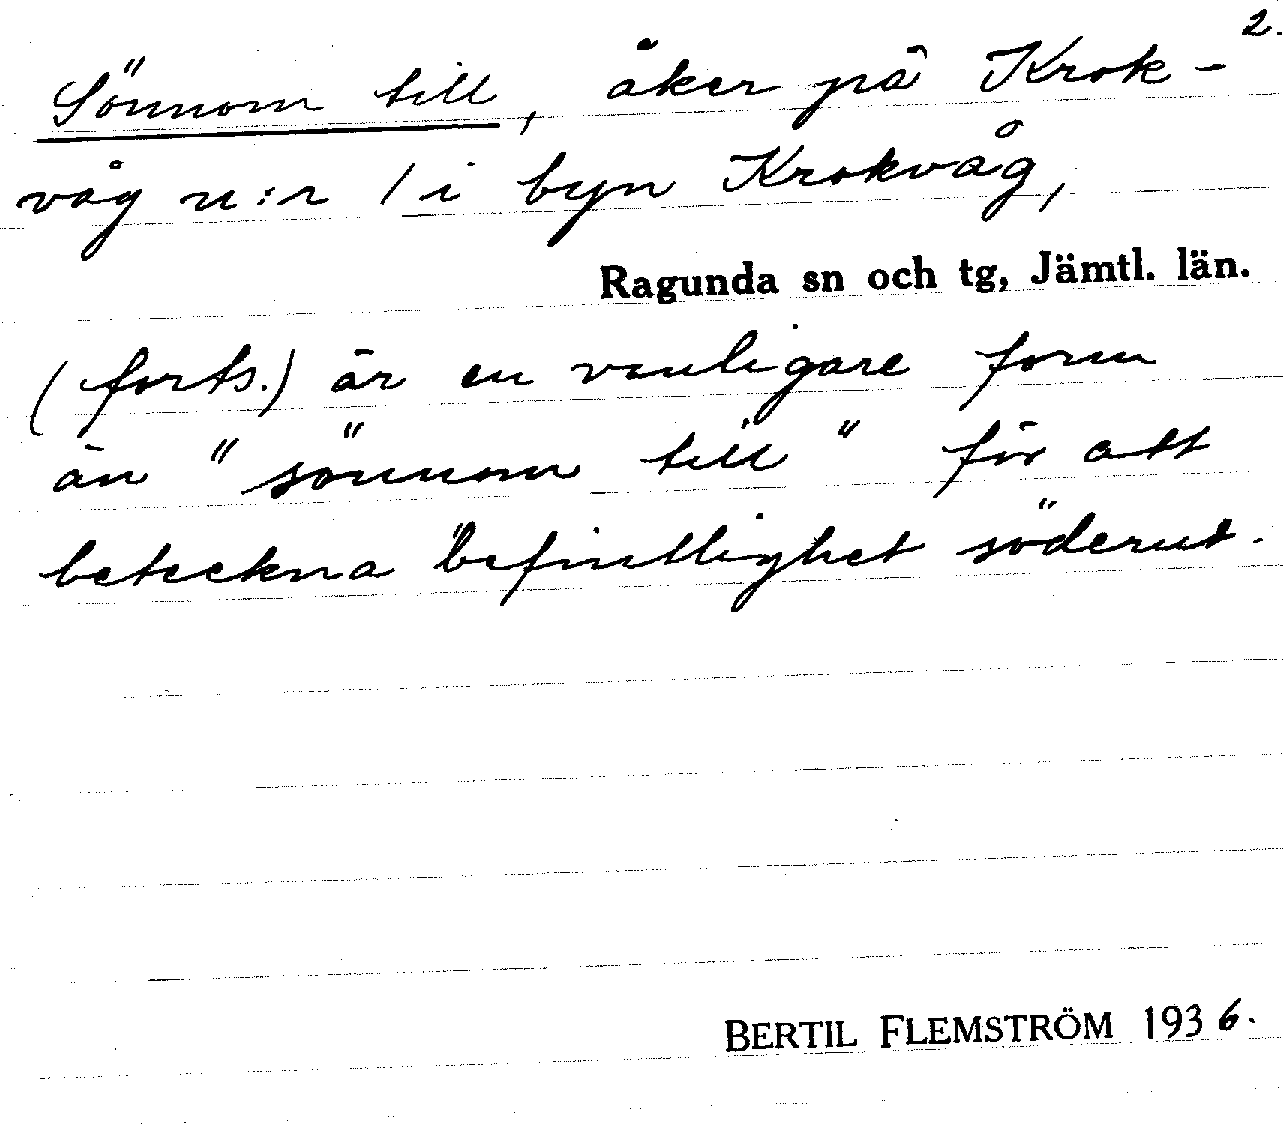 2.
Sönnom till, åker på Krok-
våg n:r 1 i byn Krokvåg,
Ragunda sn och tg, Jämtl. län.
(forts.) är en vanligare form
än "sönnom till" för att
beteckna befintlighet söderut.
BERTIL FLEMSTRÖM 1936.